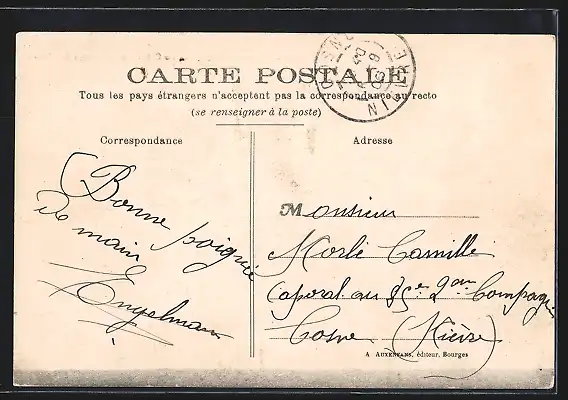 CARTE POSTALE
Tous les pays étrangers n'acceptent pas la correspondance au recto
(se renseigner à la poste)
Correspondance
Adresse
Bonne poignée
De main
Engelmann
Monsieur
Morlé Camille
Caporal au 85e 9em Compagnie
Cosne (Nièvre)
A AUXENFANS, éditeur, Bourges